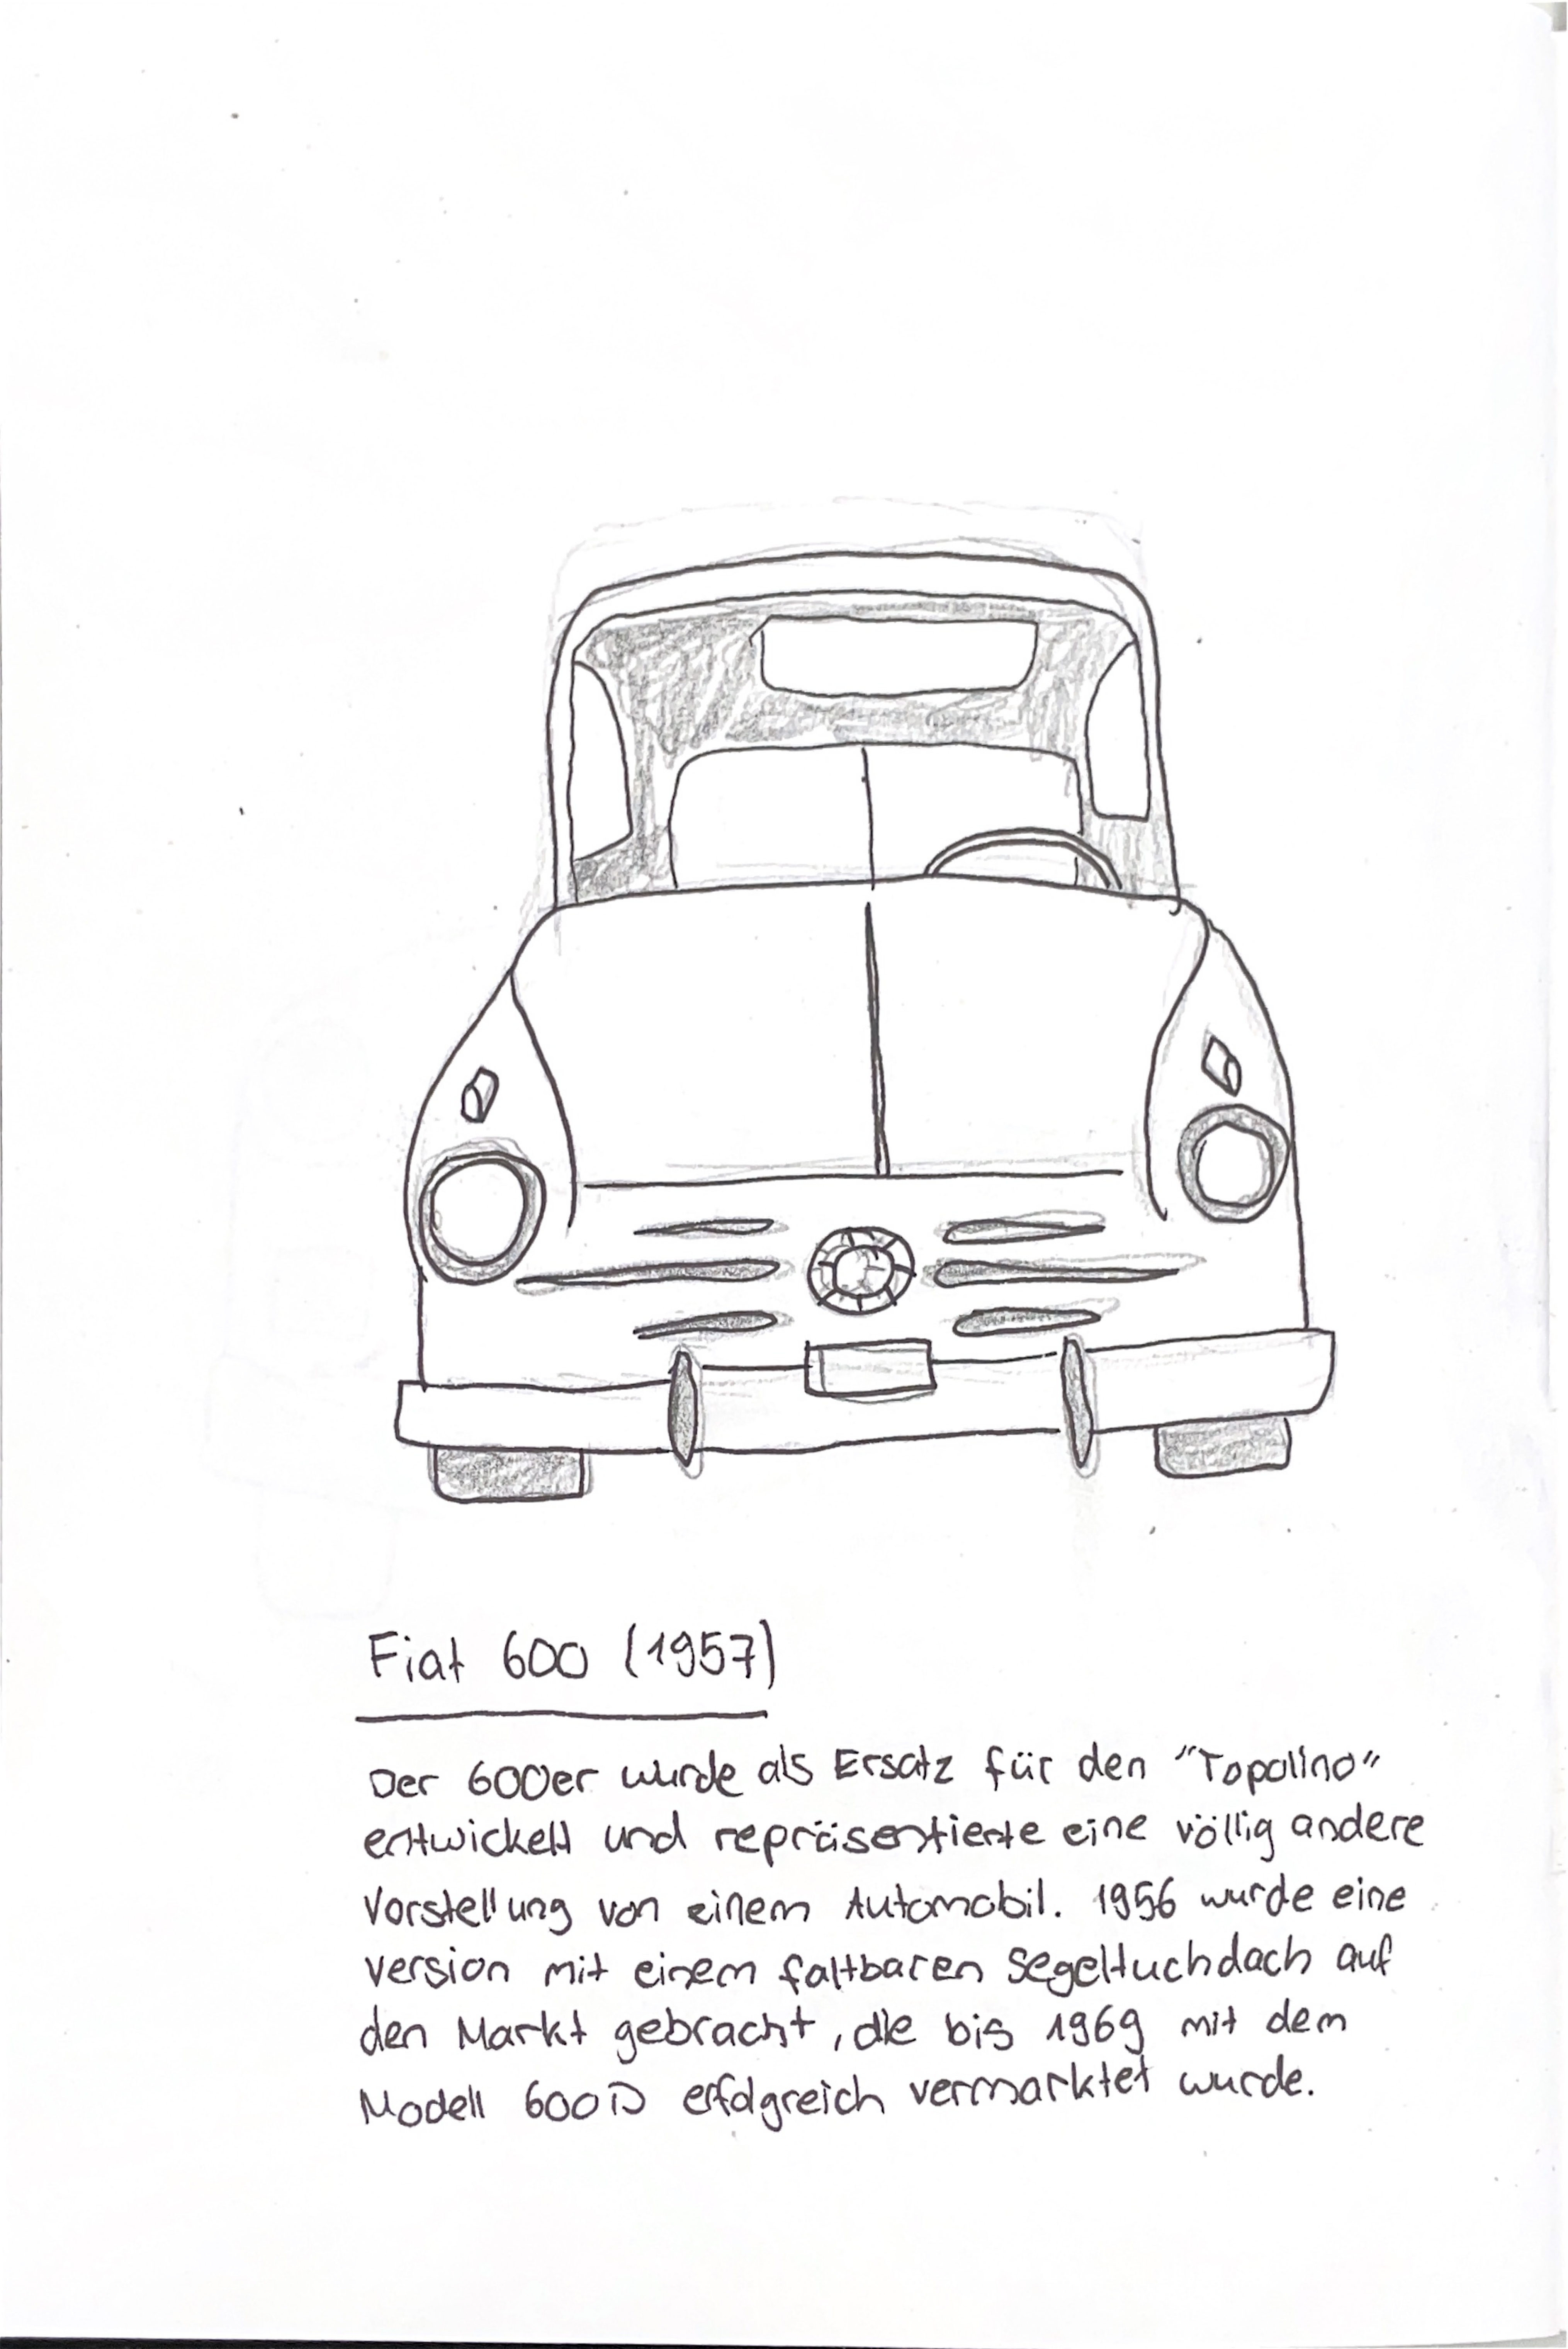 Fiat 600 (1957)
Der 600er wurde als Ersatz für den "Topolino"
entwickelt und repräsentierte eine völlig andere
Vorstellung von einem Automobil. 1956 wurde eine
Version mit einem faltbaren Segeltuchdach auf
den Markt gebracht, die bis 1969 mit dem
Modell 600D erfolgreich vermarktet wurde.